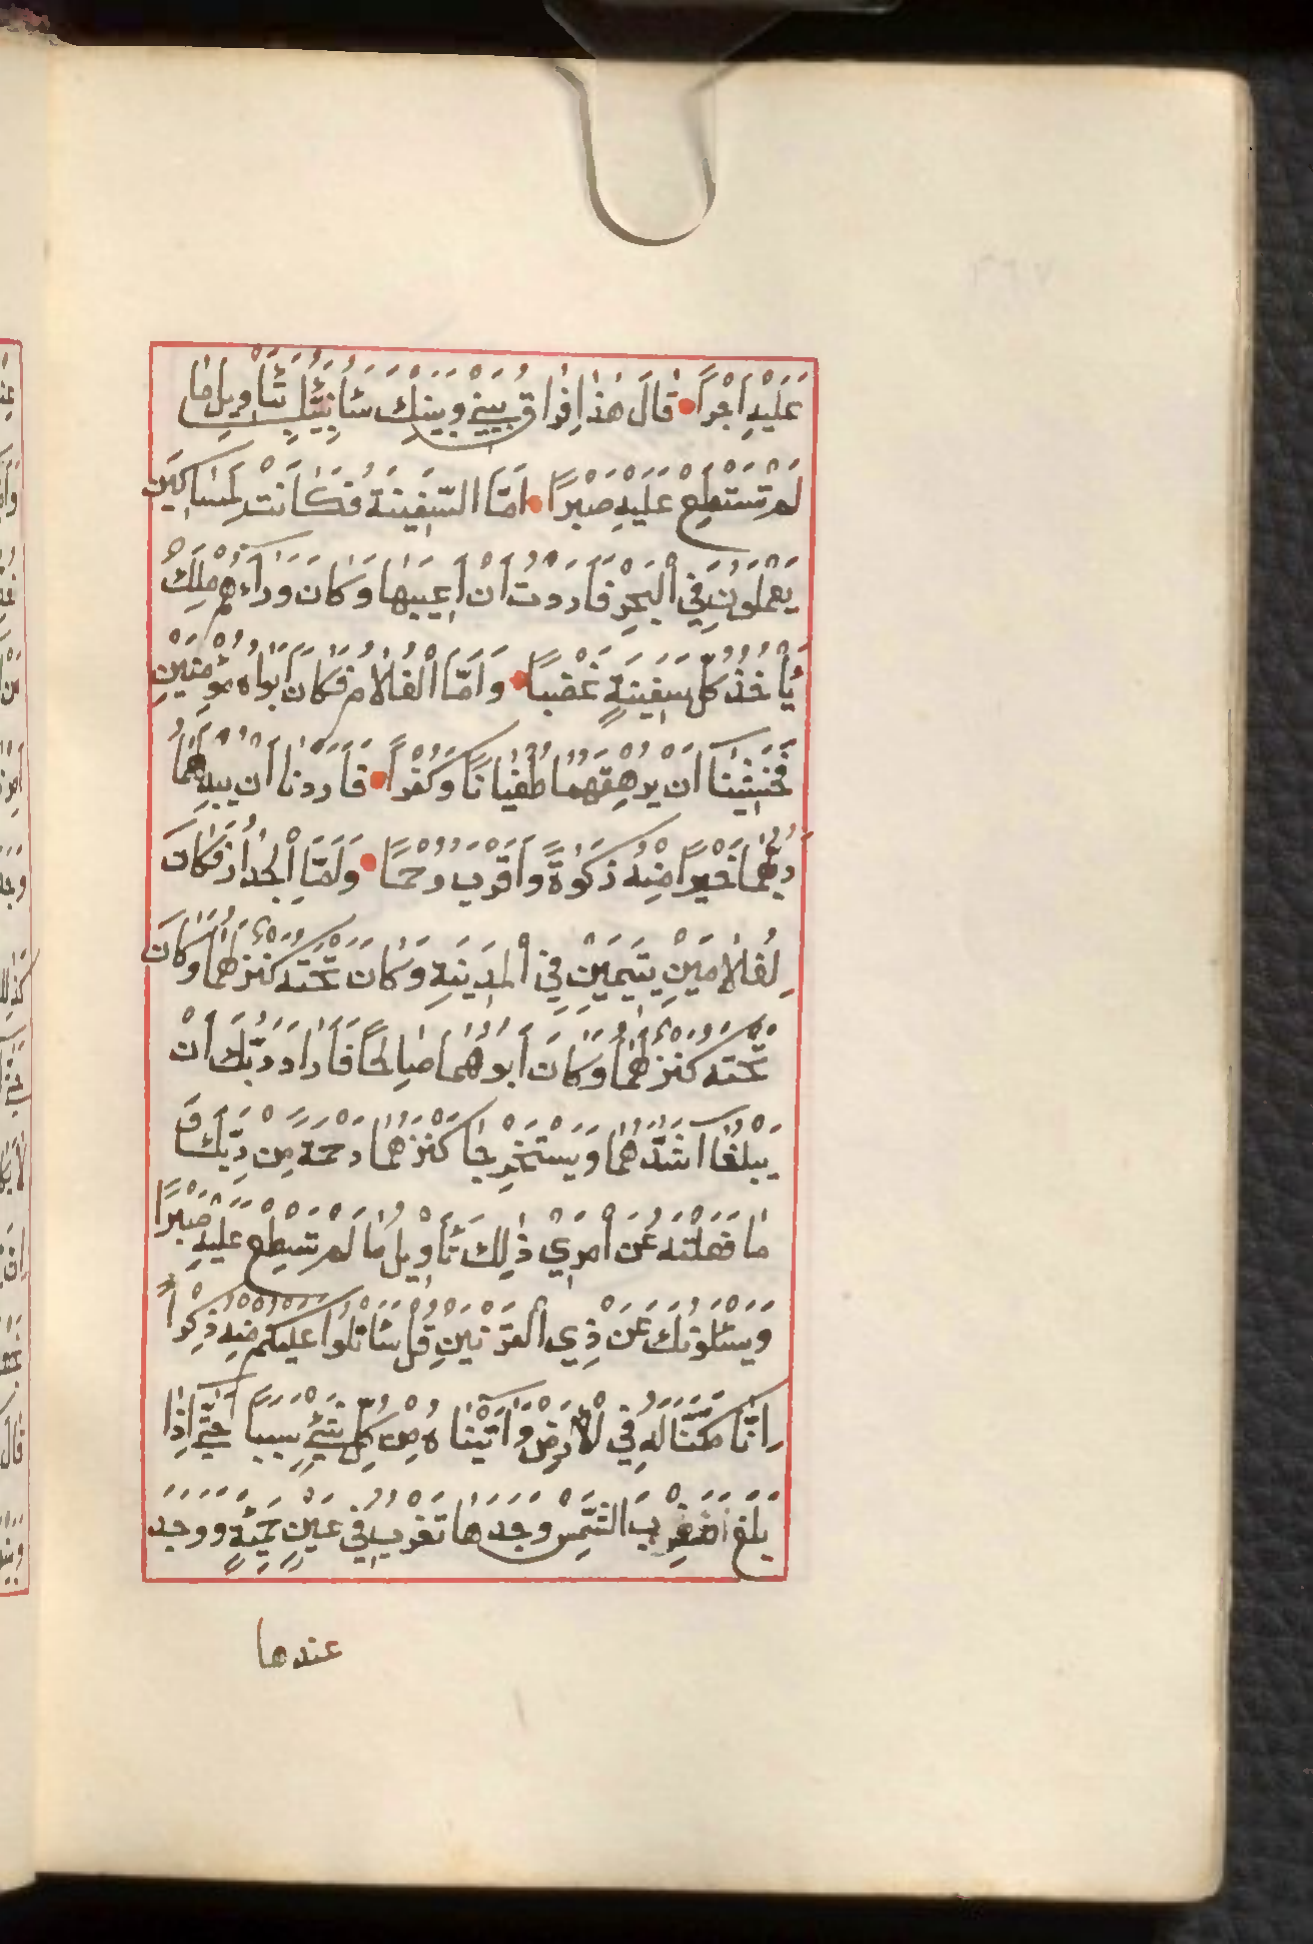 عَلَيْهِ اَجْرًا قَالَ هٰذَا فِرَاقُ بَيْنِي وَبَيْنِكَ سَاُنَبِّئُكَ بِتَأْوِيلِ مَا
لَمْ تَسْتَطِعْ عَلَيْهِ صَبْرًا اَمَّا السَّفِينَةُ فَكَانَتْ لِمَسَاكِينَ
يَعْمَلُونَ فِي الْبَحْرِ فَاَرَدْتُ اَنْ اَعِيبَهَا وَكَانَ وَرَاءَهُمْ مَلِكٌ
يَأْخُذُ كُلَّ سَفِينَةٍ غَصْبًا وَاَمَّا الْغُلَامُ فَكَانَ اَبَوَاهُ مُؤْمِنَيْنِ
فَخَشِينَا اَنْ يُرْهِقَهُمَا طُغْيَانًا وَكُفْرًا فَاَرَدْنَا اَنْ يُبْدِلَهُمَا
رَبُّهُمَا خَيْرًا مِنْهُ زَكٰوةً وَاَقْرَبَ رُحْمًا وَاَمَّا الْجِدَارُ فَكَانَ
لِغُلَامَيْنِ يَتِيمَيْنِ فِي الْمَدِينَةِ وَكَانَ تَحْتَهُ كَنْزٌ لَهُمَا وَكَانَ
تَحْتَهُ كَنْزٌ لَهُمَا وَكَانَ اَبُوهُمَا صَالِحًا فَاَرَادَ رَبُّكَ اَنْ
يَبْلُغَا اَشُدَّهُمَا وَيَسْتَخْرِجَا كَنْزَهُمَا رَحْمَةً مِنْ رَبِّكَ وَ
مَا فَعَلْتُهُ عَنْ اَمْرِي ذٰلِكَ تَأْوِيلُ مَا لَمْ تَسْطِعْ عَلَيْهِ صَبْرًا
وَيَسْئَلُونَكَ عَنْ ذِي الْقَرْنَيْنِ قُلْ سَاَتْلُوا عَلَيْكُمْ مِنْهُ ذِكْرًا
اِنَّا مَكَّنَّا لَهُ فِي الْاَرْضِ وَاٰتَيْنَاهُ مِنْ كُلِّ شَيْءٍ سَبَبًا حَتّٰى اِذَا
بَلَغَ مَغْرِبَ الشَّمْسِ وَجَدَهَا تَغْرُبُ فِي عَيْنٍ حَمِئَةٍ وَوَجَدَ
عندها